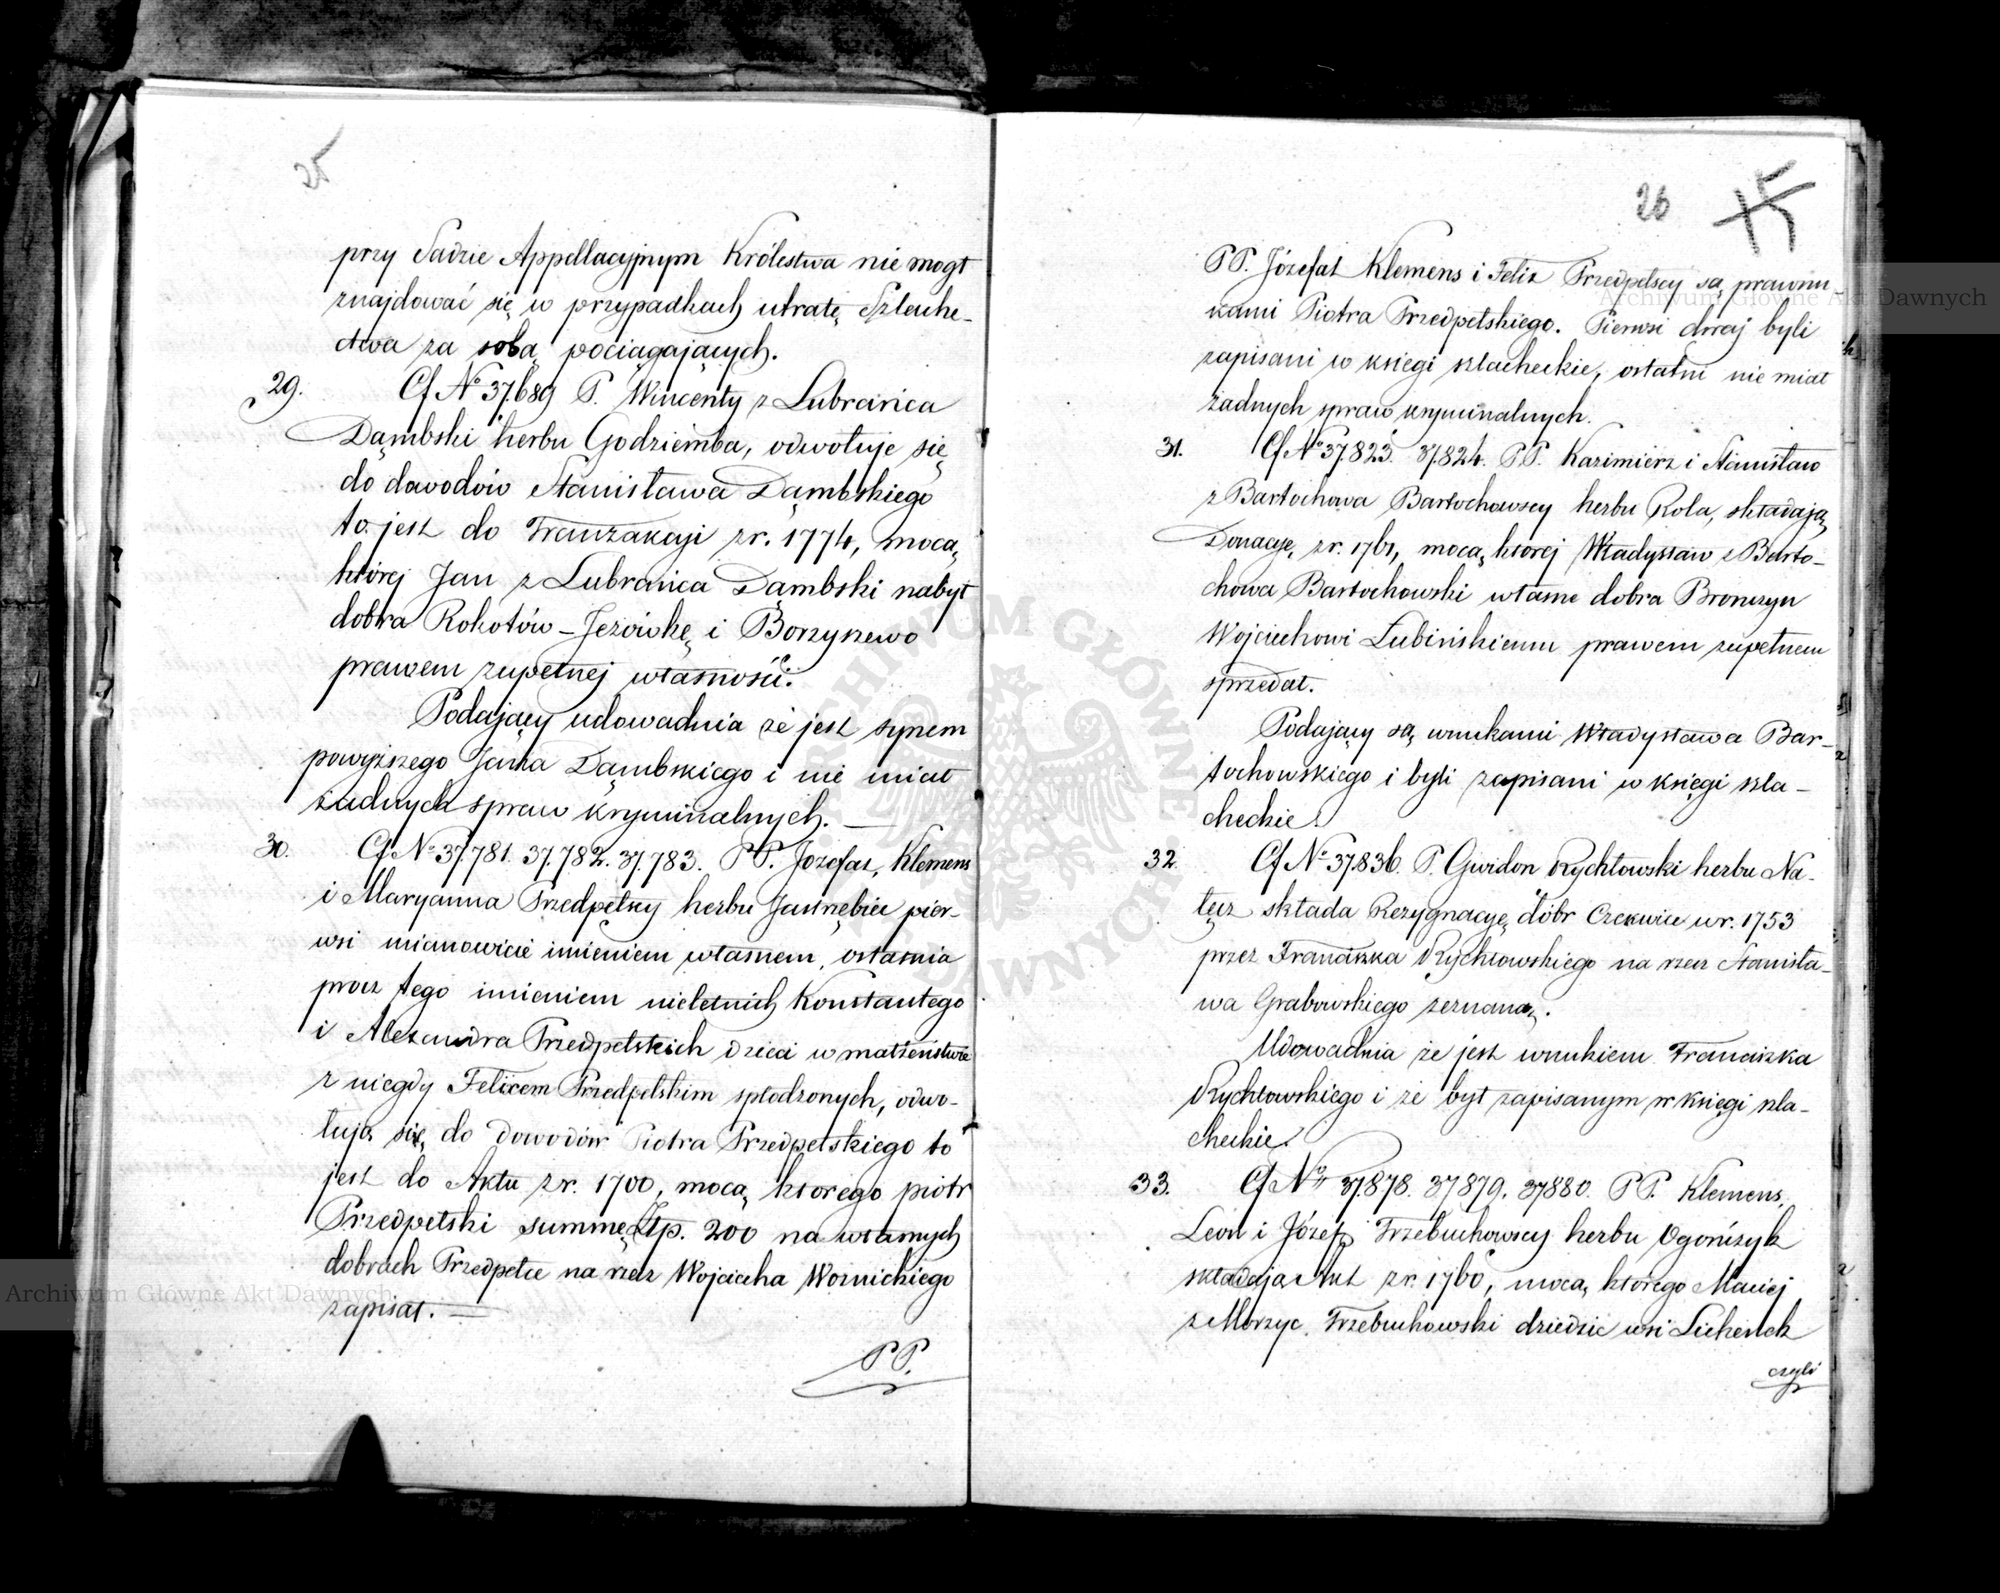 25
przy Sadzie Appellacyjnym Królestwa nie mogł
znajdować się w przypadkach utratę Szlache-
ctwa za sobą pociągających.
29. Cf No 37.689 P. Wincenty z Lubrańca
Dąmbski herbu Godziemba, odwołuje się
do dowodów Stanisława Dąmbskiego
to jest do Tranzakcji z r. 1774, mocą
której Jan z Lubrańca Dąmbski nabył
dobra Rokotów-Jeżówkę i Borzyszewo
prawem zupełnej własności.
Podający udowadnia że jest synem
powyższego Jana Dąmbskiego i nie miał
żadnych spraw kryminalnych. —
30. Cf No 37.781. 37.782. 37.783. PP. Jozefat, Klemens
i Maryanna Przedpełscy herbu Jastrzębiec pier-
wsi mianowicie imieniem własnem, ostatnia
procz tego imieniem nieletnich Konstantego
i Alexandra Przedpełskich dzieci w małżeństwie
z niegdy Felixem Przedpełskim spłodzonych, odwo-
łują się do dowodów Piotra Przedpełskiego to
jest do Aktu z r. 1700, mocą którego piotr
Przedpełski summę Złp. 200 na własnych
dobrach Przedpełce na rzecz Wojciecha Woznickiego
zapisał. —
PP.
26 15
PP. Józefat Klemens i Felix Przedpełscy są prawnu-
kami Piotra Przedpełskiego. Pierwsi dwaj byli
zapisani w księgi szlacheckie, ostatni nie miał
żadnych spraw kryminalnych.
31. Cf No 37.823. 37.824. PP. Kazimierz i Stanisław
z Bartochowa Bartochowscy herbu Rola, składają
Donacyę z r. 1761, mocą ktorej Władysław z Barto-
chowa Bartochowski własne dobra Bronczyn
Wojciechowi Łubińskiemu prawem zupełnem
sprzedał.
Podający są wnukami Władysława Bar-
tochowskiego i byli zapisani w księgi szla-
checkie.
32. Cf No 37.836. P. Gwidon Rychłowski herbu Na-
łęcz składa Rezygnacyę dóbr Czekwice w r. 1753
przez Franciszka Rychłowskiego na rzecz Stanisła-
wa Grabowskiego zeznaną.
Udowadnia że jest wnukiem Franciszka
Rychłowskiego i że był zapisanym w księgi szla-
checkie.
33. Cf No 37.878. 37879. 37880. PP. Klemens,
Leon i Józef Trzebuchowscy herbu Ogończyk
składają Akt z r. 1760, mocą ktorego Maciej
z Morzyc Trzebuchowski dziedzic wsi Licheńek
czyli
Archiwum Główne Akt Dawnych
Archiwum Główne Akt Dawnych
ARCHIWUM GŁÓWNE AKT DAWNYCH